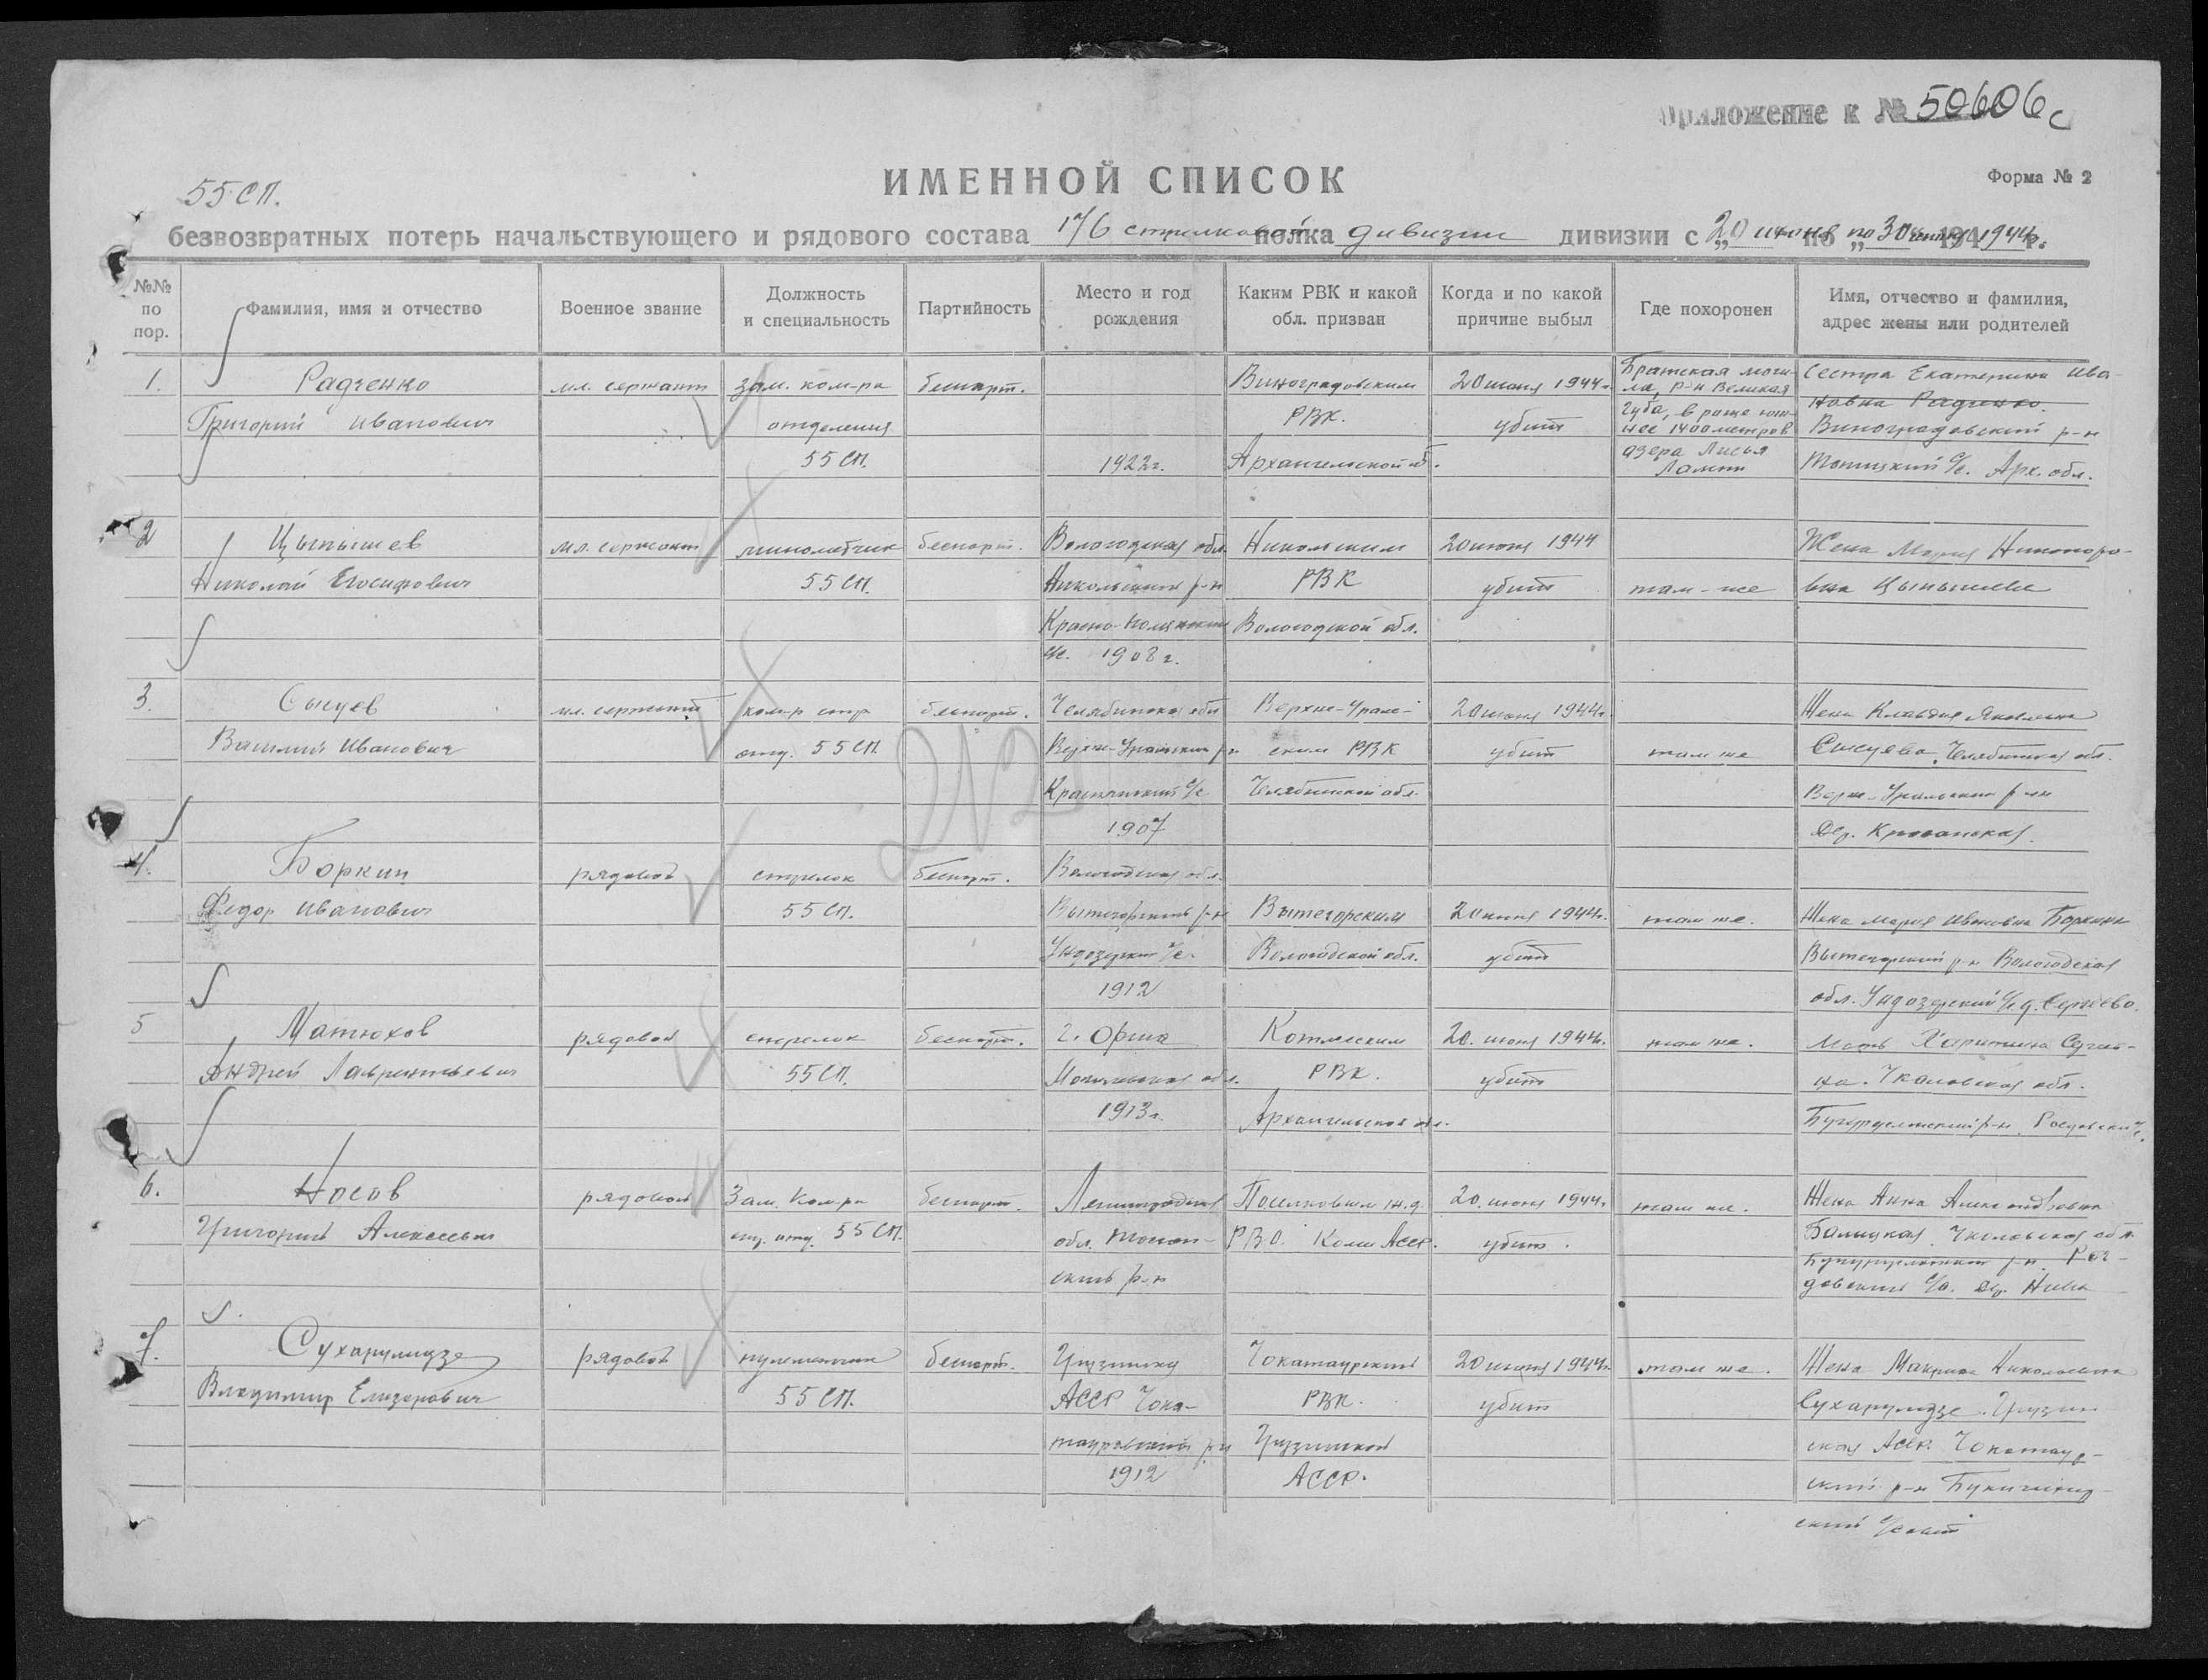 Приложение к № 50606с
Форма № 2
55 СП.
ИМЕННОЙ СПИСОК
безвозвратных потерь начальствующего и рядового состава 176 стрелковой полка дивизии дивизии с „20 июня по „ по 30 июня 194 1944 г.
№№ по пор.
Фамилия, имя и отчество
Военное звание
Должность и специальность
Партийность
Место и год рождения
Каким РВК и какой обл. призван
Когда и по какой причине выбыл
Где похоронен
Имя, отчество и фамилия, адрес жены или родителей
1. Радченко
Григорий Иванович
мл. сержант
зам. ком-ра
отделения
55 СП.
беспарт.
1922 г.
Виноградовским
РВК.
Архангельской об.
20 июня 1944 г.
убит
Братская моги-
ла, р-н Великая
Губа, в роще юж-
нее 1400 метров
озера Лисья
Ламп
Сестра Екатерина Ива-
новна Радченко.
Виноградовский р-н
с/с. Арх. обл.
2 Цыпышев
Николай
мл. сержант
минометчик
55 СП.
беспарт.
Вологодская обл.
Никольский р-н
Красно-
с/с. 1908 г.
Никольским
РВК
Вологодской обл.
20 июня 1944
убит
там-же
Жена Мария Никоноро-
вна
3. Сысуев
Василий Иванович
мл. сержант
ком-р стр
отд. 55 СП.
беспарт.
Челябинская обл
Верхне-Уральский р-н
с/с
1907
Верхне-Ураль-
ским РВК
Челябинской обл.
20 июня 1944 г.
убит
там же
Жена Клавдия Яковлевна
Сысуева, Челябинская обл.
Верхне-Уральский р-н
дер.
4. Боркин
Федор Иванович
рядовой
стрелок
55 СП.
беспарт.
Вологодская обл.
Вытегорский р-н
Ундозерский с/с.
1912
Вытегорским
Вологодской обл.
20 июня 1944 г.
убит
там же.
Жена Мария Ивановна Боркина
Вытегорский р-н Вологодская
обл. Ундозерский с/с д.
5 Матюхов
Андрей Лаврентьевич
рядовой
стрелок
55 СП.
беспарт.
г. Орша
обл.
1913 г.
Котласским
РВК.
Архангельской обл.
20. июня 1944 г.
убит
там же.
Мать Харитина
Чкаловская обл.
Бугурусланский р-н
6. Носов
Григорий Алексеевич
рядовой
Зам. Ком-ра
стр. отд. 55 СП.
беспарт.
Ленинградская
обл.
ский р-н
Поселковым ж.д.
РВО. Коми АССР.
20. июня 1944 г.
убит.
там же.
Жена Анна Александровна
Чкаловская обл.
Бугурусланский р-н.
с/с. дер.
7. Сухарулидзе
Владимир Елизорович
рядовой
пулеметчик
55 СП.
беспарт.
Грузинская
АССР Чока-
тауровский р-н
1912
Чокатаурским
РВК.
Грузинской
АССР.
20 июня 1944 г.
убит
там же.
Жена Макрина Николаевна
Сухарулидзе. Грузин-
ская АССР. Чокатаур-
ский р-н
ский с/совет